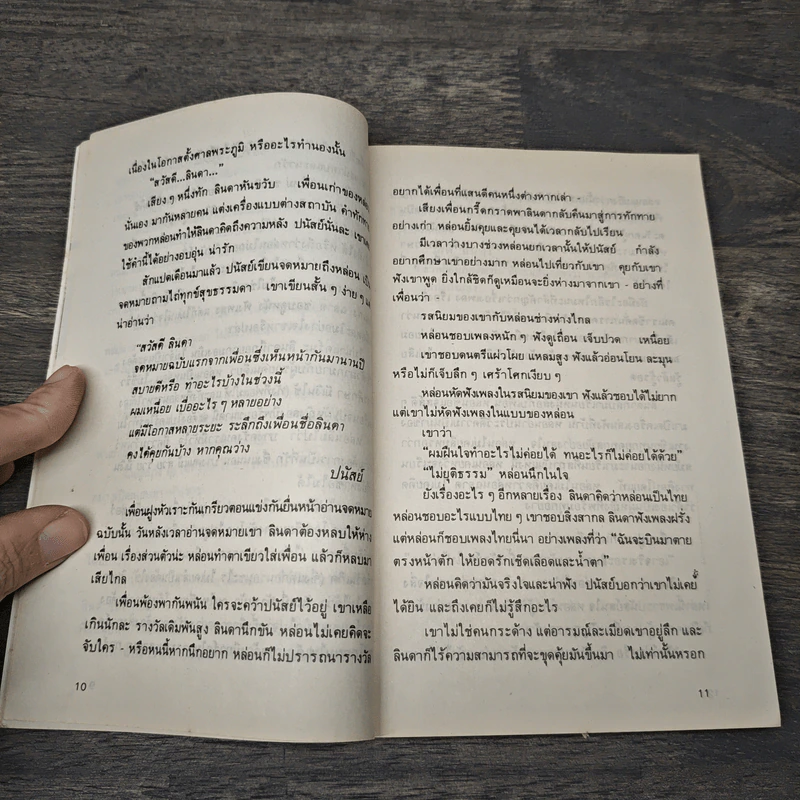 เนื่องในโอกาสตั้งศาลพระภูมิ หรืออะไรทำนองนั้น
"สวัสดี...ลินดา..."
เสียง ๆ หนึ่งทัก ลินดาหันขวับ เพื่อนเก่าของ
นั่นเอง มากันหลายคน แต่งเครื่องแบบต่างสถาบัน คำทักทาย
ของพวกหล่อนทำให้ลินดาคิดถึงความหลัง ปนัสย์นั่นละ
ใช้คำนี้ได้อย่างอบอุ่น น่ารัก
สักแปดเดือนมาแล้ว ปนัสย์เขียนจดหมายถึงหล่อน เป็น
จดหมายถามไถ่ทุกข์สุขธรรมดา เขาเขียนสั้น ๆ ง่าย ๆ
น่าอ่านว่า
"สวัสดี ลินดา
จดหมายฉบับแรกจากเพื่อนซึ่งเห็นหน้ากันมานานปี
สบายดีหรือ ทำอะไรบ้างในช่วงนี้
ผมเหนื่อย เบื่ออะไร ๆ หลายอย่าง
แต่มีโอกาสหลายระยะ ระลึกถึงเพื่อนชื่อลินดา
คงได้คุยกันบ้าง หากคุณว่าง
ปนัสย์
เพื่อนฝูงหัวเราะกันเกรียวตอนแข่งกันยื่นหน้าอ่านจดหมาย
ฉบับนั้น วันหลังเวลาอ่านจดหมายเขา ลินดาต้องหลบให้ห่าง
เพื่อน เรื่องส่วนตัวน่ะ หล่อนทำตาเขียวใส่เพื่อน แล้วก็หลบมา
เสียไกล
เพื่อนพ้องพากันพนัน ใครจะคว้าปนัสย์ไว้อยู่ เขาเหลือ
เกินนักละ รางวัลเดิมพันสูง ลินดานึกขัน หล่อนไม่เคยคิดจะ
จับใคร - หรือหนนี้หากนึกอยาก หล่อนก็ไม่ปรารถนารางวัล
10
อยากได้เพื่อนที่แสนดีคนหนึ่งต่างหากเล่า -
เสียงเพื่อนกรี๊ดกราดพาลินดากลับคืนมาสู่การทักทาย
อย่างเก่า หล่อนยิ้มคุยและคุยจนได้เวลากลับไปเรียน
มีเวลาว่างบางช่วงหล่อนยกเวลานั้นให้ปนัสย์ กำลัง
อยากศึกษาเขาอย่างมาก หล่อนไปเที่ยวกับเขา คุยกับเขา
ฟังเขาพูด ยิ่งใกล้ชิดก็ดูเหมือนจะยิ่งห่างมาจากเขา - อย่างที่
เพื่อนว่า -
รสนิยมของเขากับหล่อนช่างห่างไกล
หล่อนชอบเพลงหนัก ๆ ฟังดูเถื่อน เจ็บปวด เหนื่อย
เขาชอบดนตรีแผ่วโผย แหลมสูง ฟังแล้วอ่อนโยน ละมุน
หรือไม่ก็เจ็บลึก ๆ เศร้าโศกเงียบ ๆ
หล่อนหัดฟังเพลงในรสนิยมของเขา ฟังแล้วชอบได้ไม่ยาก
แต่เขาไม่หัดฟังเพลงในแบบของหล่อน
เขาว่า
"ผมฝืนใจทำอะไรไม่ค่อยได้ ทนอะไรก็ไม่ค่อยได้ด้วย"
"ไม่ยุติธรรม" หล่อนนึกในใจ
ยังเรื่องอะไร ๆ อีกหลายเรื่อง ลินดาคิดว่าหล่อนเป็นไทย
หล่อนชอบอะไรแบบไทย ๆ เขาชอบสิ่งสากล ลินดาฟังเพลงฝรั่ง
แต่หล่อนก็ชอบเพลงไทยนี่นา อย่างเพลงที่ว่า "ฉันจะบินมาตาย
ตรงหน้าตัก ให้ยอดรักเช็ดเลือดและน้ำตา"
หล่อนคิดว่ามันจริงใจและน่าฟัง ปนัสย์บอกว่าเขาไม่เคย
ได้ยิน และถึงเคยก็ไม่รู้สึกอะไร
เขาไม่ใช่คนกระด้าง แต่อารมณ์ละเมียดเขาอยู่ลึก และ
ลินดาก็ไร้ความสามารถที่จะขุดคุ้ยมันขึ้นมา ไม่เท่านั้นหรอก
11